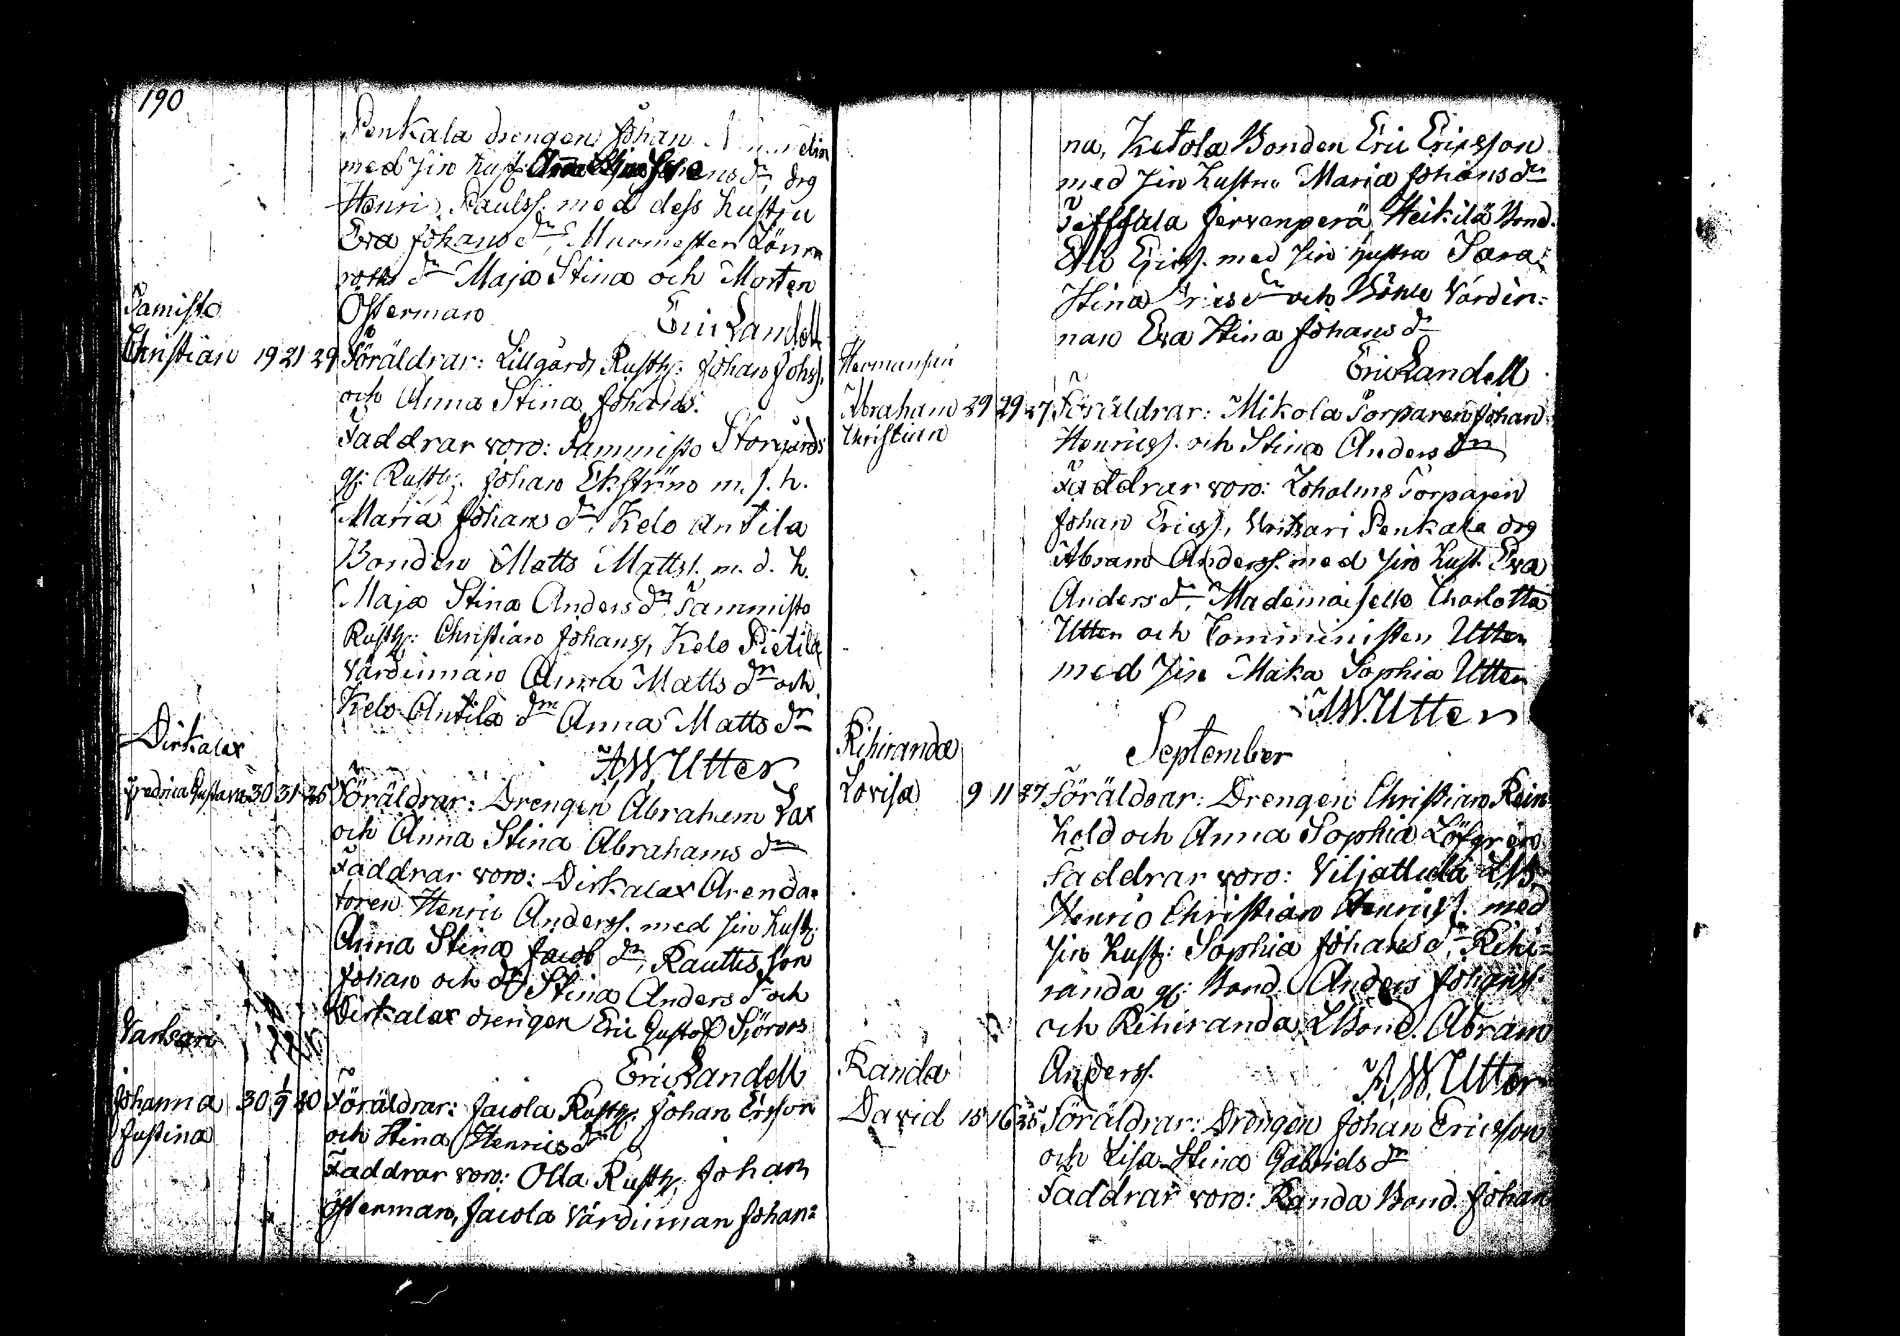 190
Penkala drengen Johan
med sin hust. Johansdr, drg
Henric Paulss. med dess hustru
Eva Johansdr, Murmester Lönn
roths dr Maja Stina och Morten
Österman
Eric Landell
Tamisto
Christian 19 21 29 Föräldrar: Lillgårds Rusth: Johan Johss.
och Anna Stina Johansd.
Faddrar voro: Tammisto Storgårds
gf: Rusth. Johan Ekström m. s. h.
Maria Johans dr, Kelo Antila
Bonden Matts Mattss. m. d. h.
Maja Stina Anders dr, Tammisto
Rusth: Christian Johanss, Kelo Pietilä
Värdinnan Anna Matts dr och
Kelo Antila drn Anna Matts dr
A.W. Utter
Dirkalax
Fredrica Gustava 30 31 25 Föräldrar: Drengen Abraham Lax
och Anna Stina Abrahams dr
Faddrar voro: Dirkalax Arenda=
toren Henric Anderss. med sin hust:
Anna Stina Jacob dr, Rauttis son
Johan och dr Stina Anders dr och
Dirkalax drengen Eric Gustof Sjöroos
Eric Landell
Varhsari
Johanna 30 1/9 40 Föräldrar: Jaiola Rusth: Johan Ersson
Justina och Stina Henrics dr
Faddrar voro: Olla Rusth: Johan
Österman, Jaiola Värdinnan Johan=
na, Ketola Bonden Eric Ericsson
med sin hustru Maria Johans dr
Järvenperä Heikilä Bond.
Elis Ericss. med sin hustru Sara
Stina Erics dr och Böhle Värdin=
nan Eva Stina Johans dr
Eric Landell
Hermansari
Abraham 29 29 27 Föräldrar: Mikola Torparen Johan
Christian Henricss. och Stina Anders dr
Faddrar voro: Loholms Torparen
Johan Ericss, Penkala drg
Abram Anderss. med sin hust. Eva
Anders dr, Mademoiselle Charlotta
Utter och Comministern Utter
med sin Maka Sophia Utter
A.W. Utter
September
Rihiranda
Lovisa 9 11 27 Föräldrar: Drengen Christian Rein
hold och Anna Sophia Löfgren
Faddrar voro: Viljattula LB.
Henric Christian Henricss. med
sin hust: Sophia Johans dr, Rihi=
randa gf: Bond. Anders Johanss
och Rihiranda LBond. Abram
Anderss.
A.W. Utter
Randa
David 15 16 25 Föräldrar: Drengen Johan Ericsson
och Lisa Stina Gabriels dr
Faddrar voro: Randa Bond. Johan